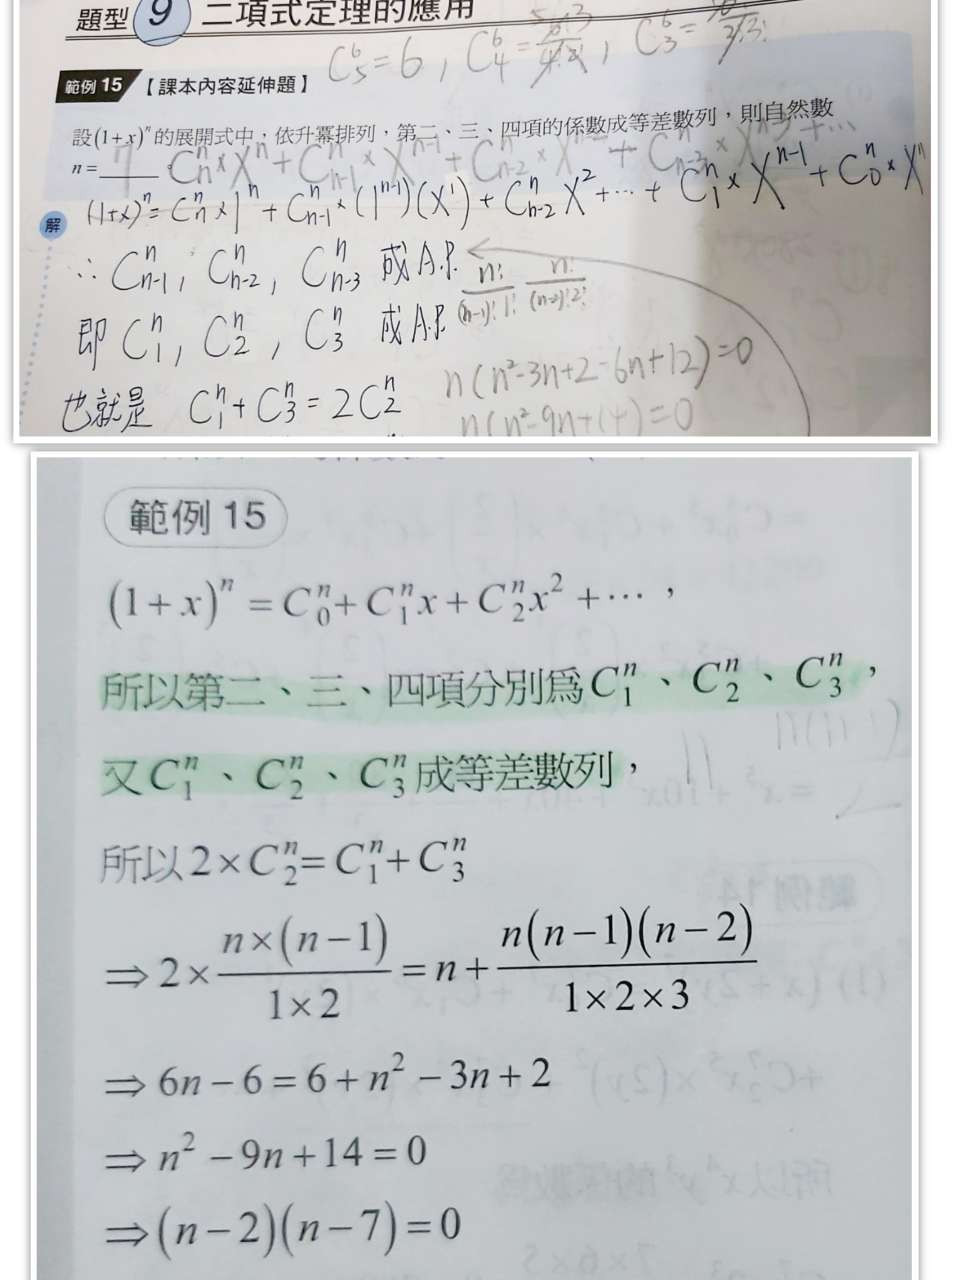 題型 9 二項式定理的應用
C⁶₅ = 6 , C⁶₄ = , C⁶₃ =
範例 15 【課本內容延伸題】
設(1+x)ⁿ的展開式中,依升冪排列,第二、三、四項的係數成等差數列,則自然數
n = 7
解 (1+x)ⁿ = Cⁿₙ × 1ⁿ + Cⁿₙ₋₁ × (1ⁿ⁻¹)(x¹) + Cⁿₙ₋₂ X² + ⋯ + Cⁿ₁ × Xⁿ⁻¹ + Cⁿ₀ × Xⁿ
∴ Cⁿₙ₋₁ , Cⁿₙ₋₂ , Cⁿₙ₋₃ 成 A.P. n!/(n-1)!1! n!/(n-2)!2!
即 Cⁿ₁ , Cⁿ₂ , Cⁿ₃ 成 A.P.
n(n²-3n+2-6n+12)=0
也就是 Cⁿ₁ + Cⁿ₃ = 2Cⁿ₂
n(n²-9n+14)=0
範例 15
(1+x)ⁿ = Cⁿ₀ + Cⁿ₁x + Cⁿ₂x² + ⋯ ,
所以第二、三、四項分別為 Cⁿ₁、Cⁿ₂、Cⁿ₃,
又 Cⁿ₁、Cⁿ₂、Cⁿ₃ 成等差數列,
所以 2×Cⁿ₂ = Cⁿ₁ + Cⁿ₃
⇒ 2× n×(n-1)/1×2 = n + n(n-1)(n-2)/1×2×3
⇒ 6n-6 = 6+n²-3n+2
⇒ n²-9n+14 = 0
⇒ (n-2)(n-7) = 0